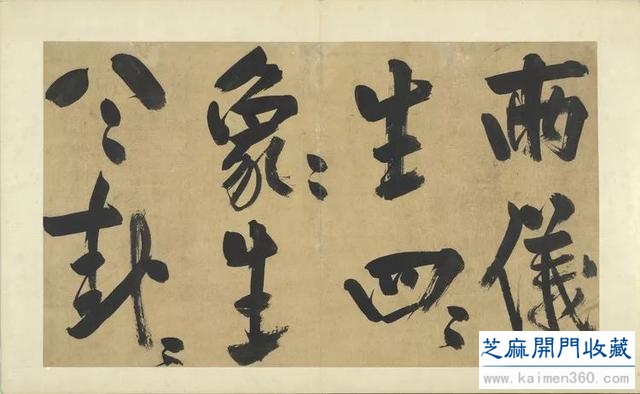 兩儀
生四〻
象〻生
八〻卦〻
芝麻開門收藏
www.kaimen360.com